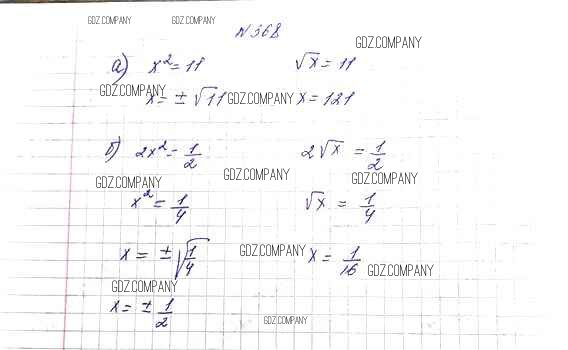 GDZ.COMPANY GDZ.COMPANY
N 368
GDZ.COMPANY
а) x² = 11 √x = 11
GDZ.COMPANY
x = ± √11 GDZ.COMPANY x = 121
б) 2x² = 1/2 2√x = 1/2
GDZ.COMPANY GDZ.COMPANY GDZ.COMPANY
x² = 1/4 √x = 1/4
x = ± √1/4 GDZ.COMPANY x = 1/16
GDZ.COMPANY
GDZ.COMPANY
x = ± 1/2
GDZ.COMPANY